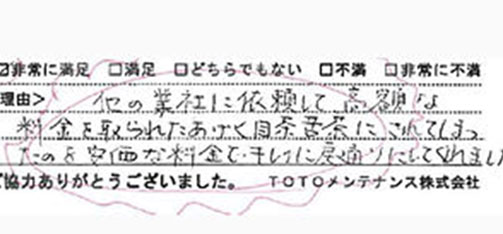 ☑非常に満足 □満足 □どちらでもない □不満 □非常に不満
理由> 他の業社に依頼して高額な
料金を取られたあげく目茶苦茶にされてしまっ
たのを安価な料金でキレイに元通りにしてくれまし
ご協力ありがとうございました。 TOTOメンテナンス株式会社